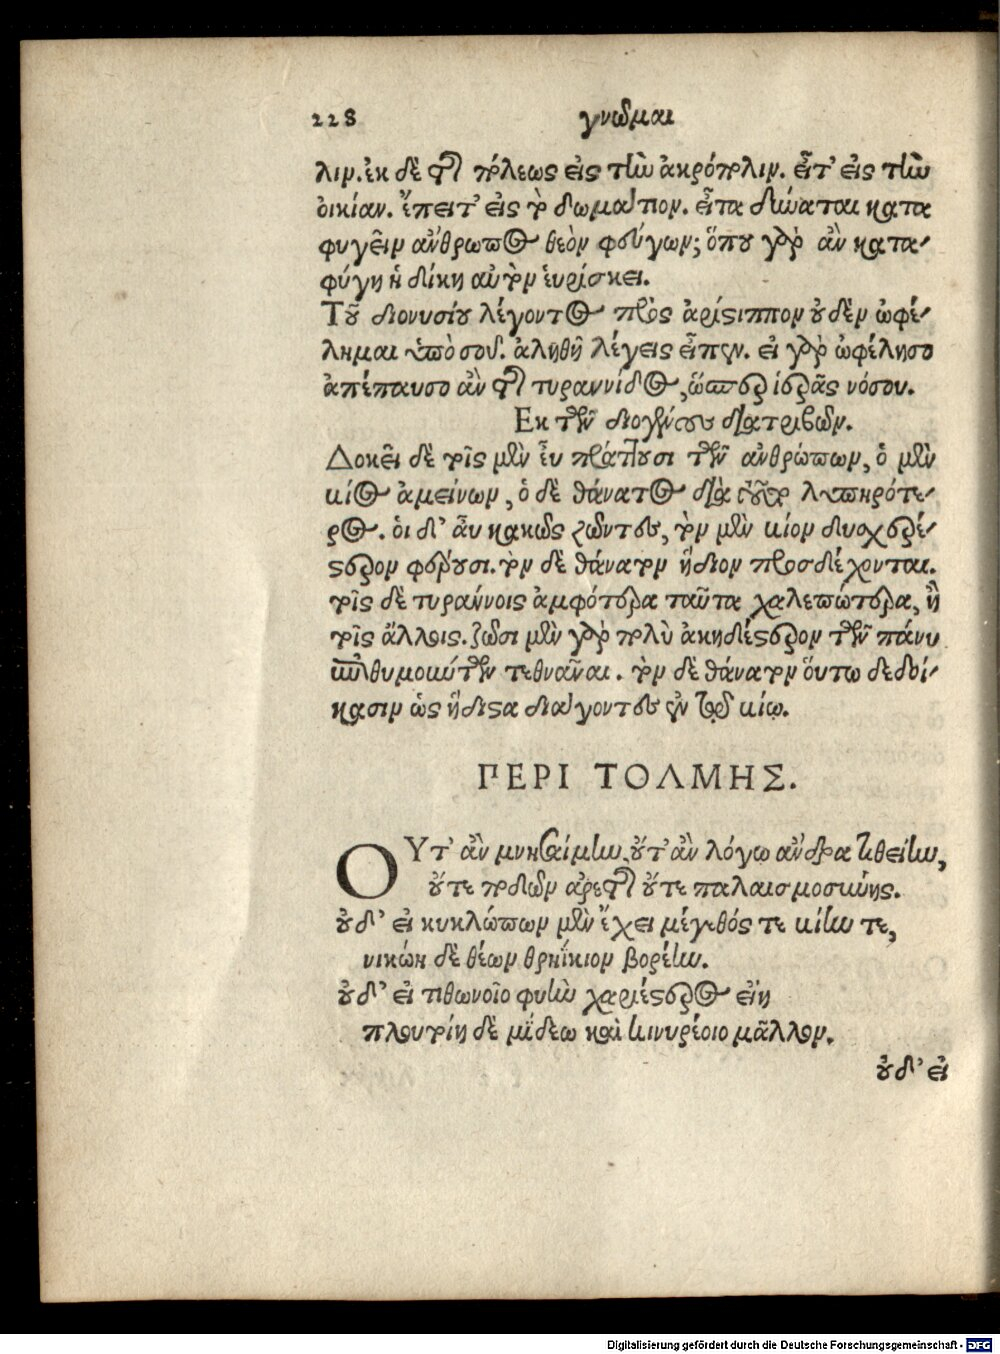 228 γνῶμαι
λιν. ἐκ δὲ τῆς πόλεως εἰς τὴν ἀκρόπολιν. εἶτ' εἰς τὴν
οἰκίαν. ἔπειτ' εἰς τὸ δωμάτιον. εἶτα δύναται κατα
φυγεῖν ἄνθρωπος θεὸν φεύγων; ὅπου γὰρ ἂν κατα-
φύγη ἡ δίκη αὐτὸν εὑρίσκει.
Τοῦ διονυσίου λέγοντος πρὸς ἀρίστιππον οὐδὲν ὠφέ-
λημαι ὑπὸ σοῦ. ἀληθῆ λέγεις εἶπεν. εἰ γὰρ ὠφέλησο
ἀπέπαυσο ἂν τῆς τυραννίδος, ὥσπερ ἱερᾶς νόσου.
Εκ τῶν διογένους διατριβῶν.
Δοκεῖ δὲ τοῖς μὲν εὖ πράττουσι τῶν ἀνθρώπων, ὁ μὲν
βίος ἀμείνων, ὁ δὲ θάνατος διὰ τοῦτο λυπηρότε-
ρος. οἱ δ' αὖ κακῶς ζῶντες, τὸν μὲν βίον δυσχερέ-
στερον φέρουσι. τὸν δὲ θάνατον ἥδιον προσδέχονται.
τοῖς δὲ τυράννοις ἀμφότερα ταῦτα χαλεπώτερα, ἢ
τοῖς ἄλλοις. ζῶσι μὲν γὰρ πολὺ ἀκηδέστερον τῶν πάνυ
ἐπιθυμούντων τεθνᾶναι. τὸν δὲ θάνατον οὕτω δεδοί-
κασιν ὡς ἥδιστα διάγοντες ἐν τῷ βίῳ.
ΠΕΡΙ ΤΟΛΜΗΣ.
ΟΥτ' ἂν μνησαίμην, οὔτ' ἂν λόγῳ ἄνδρα τιθείην,
οὔτε ποδῶν ἀρετῆς οὔτε παλαισμοσύνης.
οὐδ' εἰ κυκλώπων μὲν ἔχει μέγεθός τε βίην τε,
νικώη δὲ θέων θρηΐκιον βορέην.
οὐδ' εἰ τιθωνοῖο φυὴν χαριέστερος εἴη
πλουτοίη δὲ μίδεω καὶ κινυρέοιο μᾶλλον.
οὐδ' εἰ
Digitalisierung gefördert durch die Deutsche Forschungsgemeinschaft - DFG